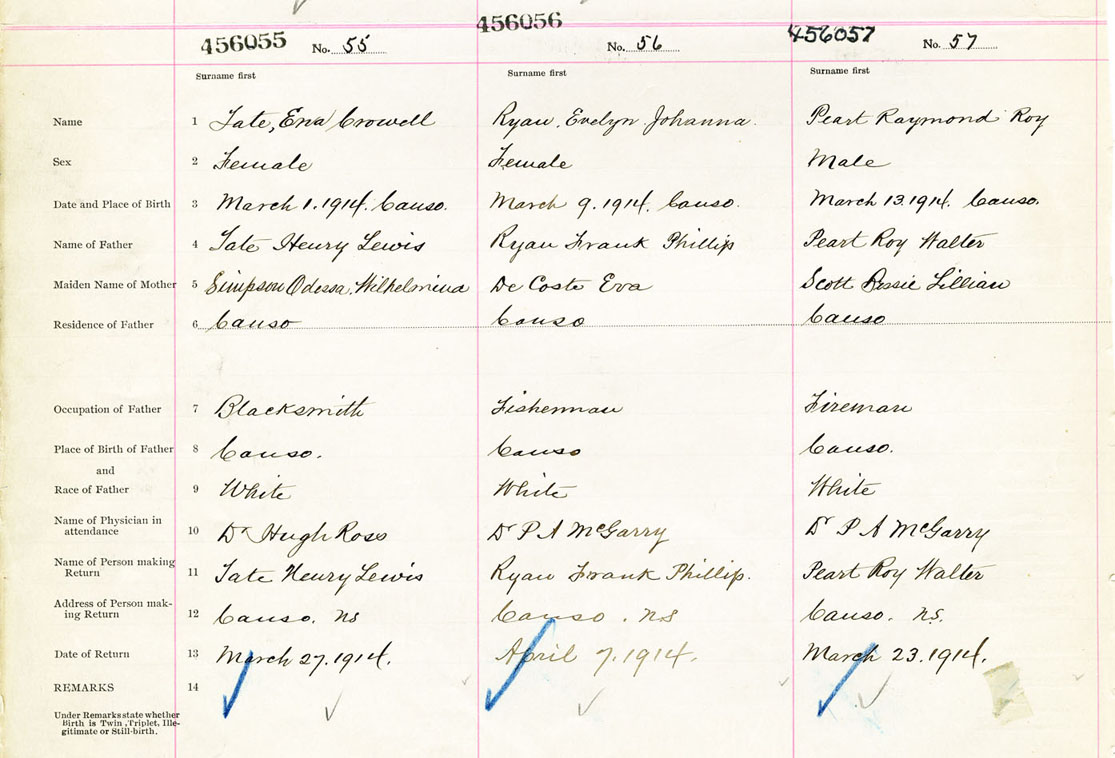 456055 No. 55 456056 No. 56 456057 No. 57
Surname first Surname first Surname first
Name 1 Tate, Ena Crowell Ryan, Evelyn Johanna. Peart Raymond Roy
Sex 2 Female Female Male
Date and Place of Birth 3 March 1. 1914. Canso. March 9. 1914. Canso. March 13. 1914. Canso.
Name of Father 4 Tate Henry Lewis Ryan Frank Phillip Peart Roy Walter
Maiden Name of Mother 5 Simpson Odessa, Wilhelmina De Coste Eva Scott Lillian
Residence of Father 6 Canso Canso Canso
Occupation of Father 7 Blacksmith Fisherman Fireman
Place of Birth of Father 8 Canso. Canso Canso.
and
Race of Father 9 White White White
Name of Physician in
attendance 10 Dr Hugh Ross Dr P A McGarry Dr P A McGarry
Name of Person making
Return 11 Tate Henry Lewis Ryan Frank Phillip. Peart Roy Walter
Address of Person mak-
ing Return 12 Canso. NS Canso. NS Canso. NS.
Date of Return 13 March 27. 1914. April 7. 1914. March 23. 1914.
REMARKS 14
Under Remarks state whether
Birth is Twin, Triplet, Ille-
gitimate or Still-birth.